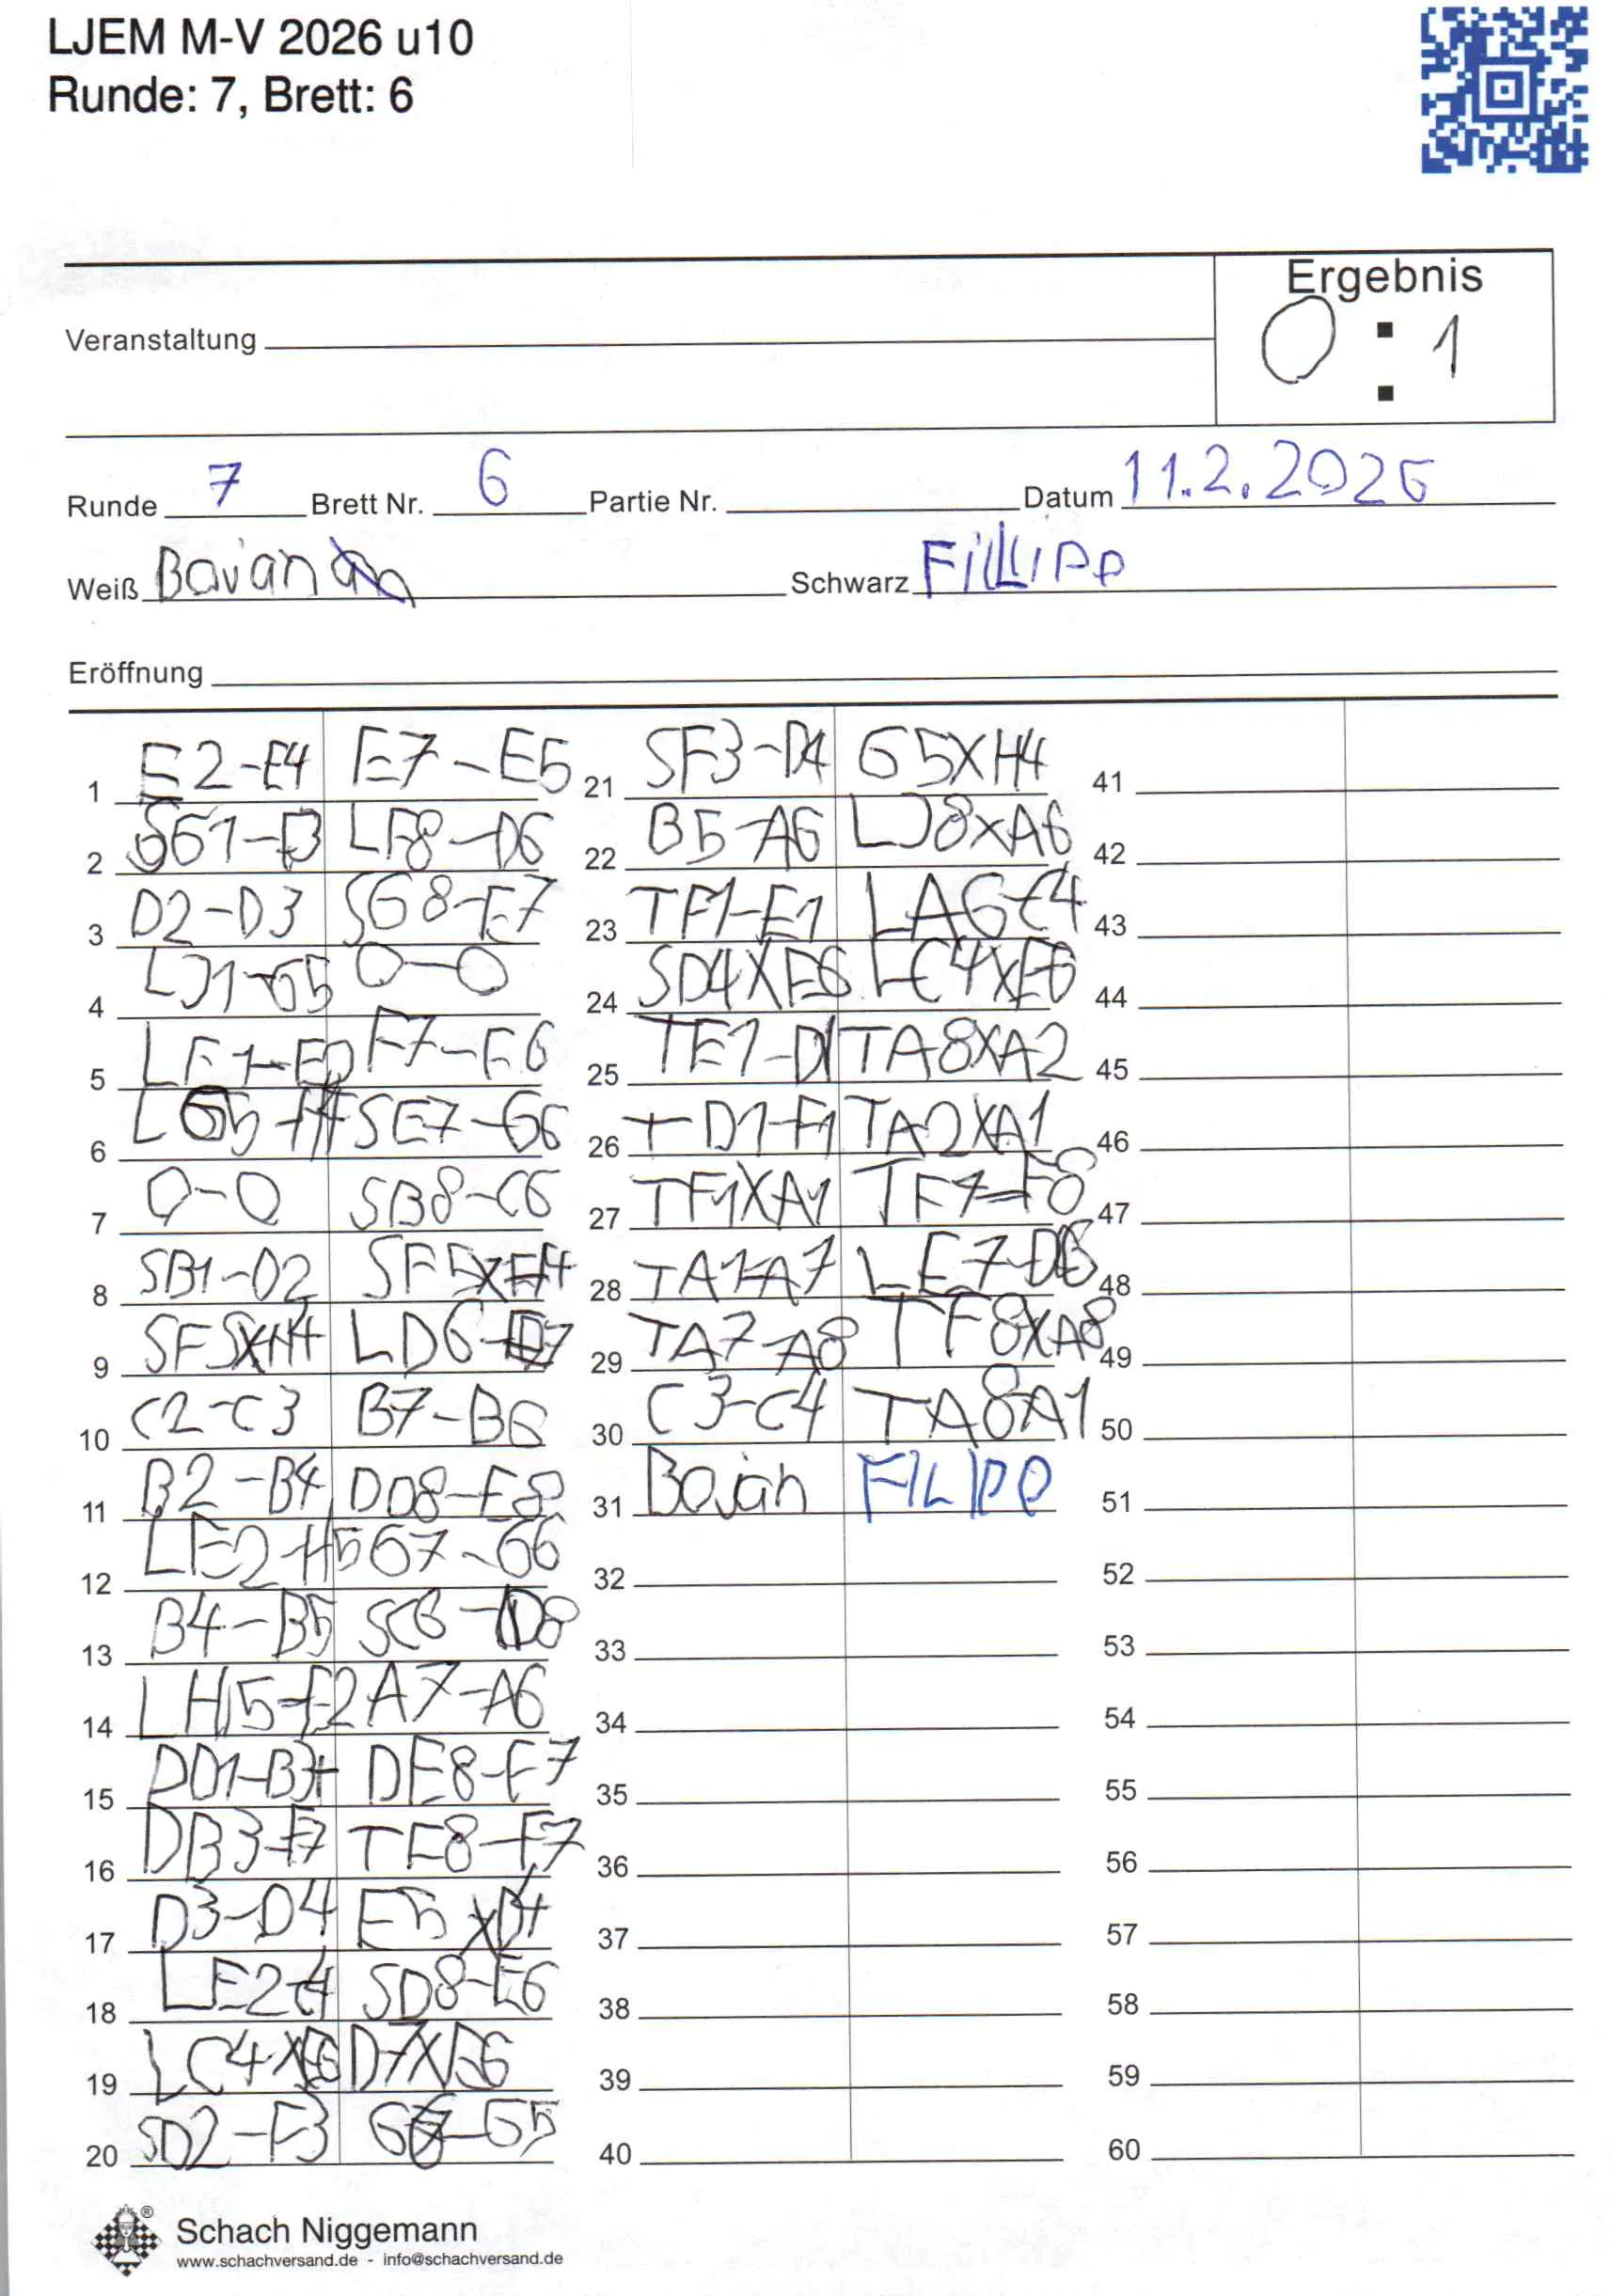 LJEM M-V 2026 u10
Runde: 7, Brett: 6
Ergebnis
0 : 1
Veranstaltung
Runde 7 Brett Nr. 6 Partie Nr. Datum 11.2.2026
Weiß Bojan Schwarz FiLLIPP
Eröffnung
1 E2-E4 E7-E5 21 SF3-D4 G5XH4 41
2 SG1-F3 LF8-D6 22 B5-A6 LJ8xA6 42
3 D2-D3 SG8-E7 23 TF1-E1 LAGC4 43
4 LJ1-G5 O-O 24 SD4XE6 LC4XE6 44
5 LF1-E2 F7-F6 25 TE1-D1 TA8XA2 45
6 LG5-H4 SE7-G6 26 T D1-F1 TA2XA1 46
7 O-O SB8-C6 27 TF1XA1 TF7-F8 47
8 SB1-D2 SF5XH4 28 TA1-A7 LE7-D6 48
9 SF3XH4 LD6-E7 29 TA7-A8 TF8XA8 49
10 C2-C3 B7-B6 30 C3-C4 TA8A1 50
11 B2-B4 DD8-E8 31 Bojan FILIPP 51
12 LE2-H5 G7-G6 32 52
13 B4-B5 SC6-D8 33 53
14 LH5-E2 A7-A6 34 54
15 DD1-B3+ DE8-F7 35 55
16 DB3-F7 TF8-F7 36 56
17 D3-D4 E5XD4 37 57
18 LE2-C4 SD8-E6 38 58
19 LC4XE6 D7XE6 39 59
20 SD2-F3 G6-G5 40 60
Schach Niggemann
www.schachversand.de - info@schachversand.de